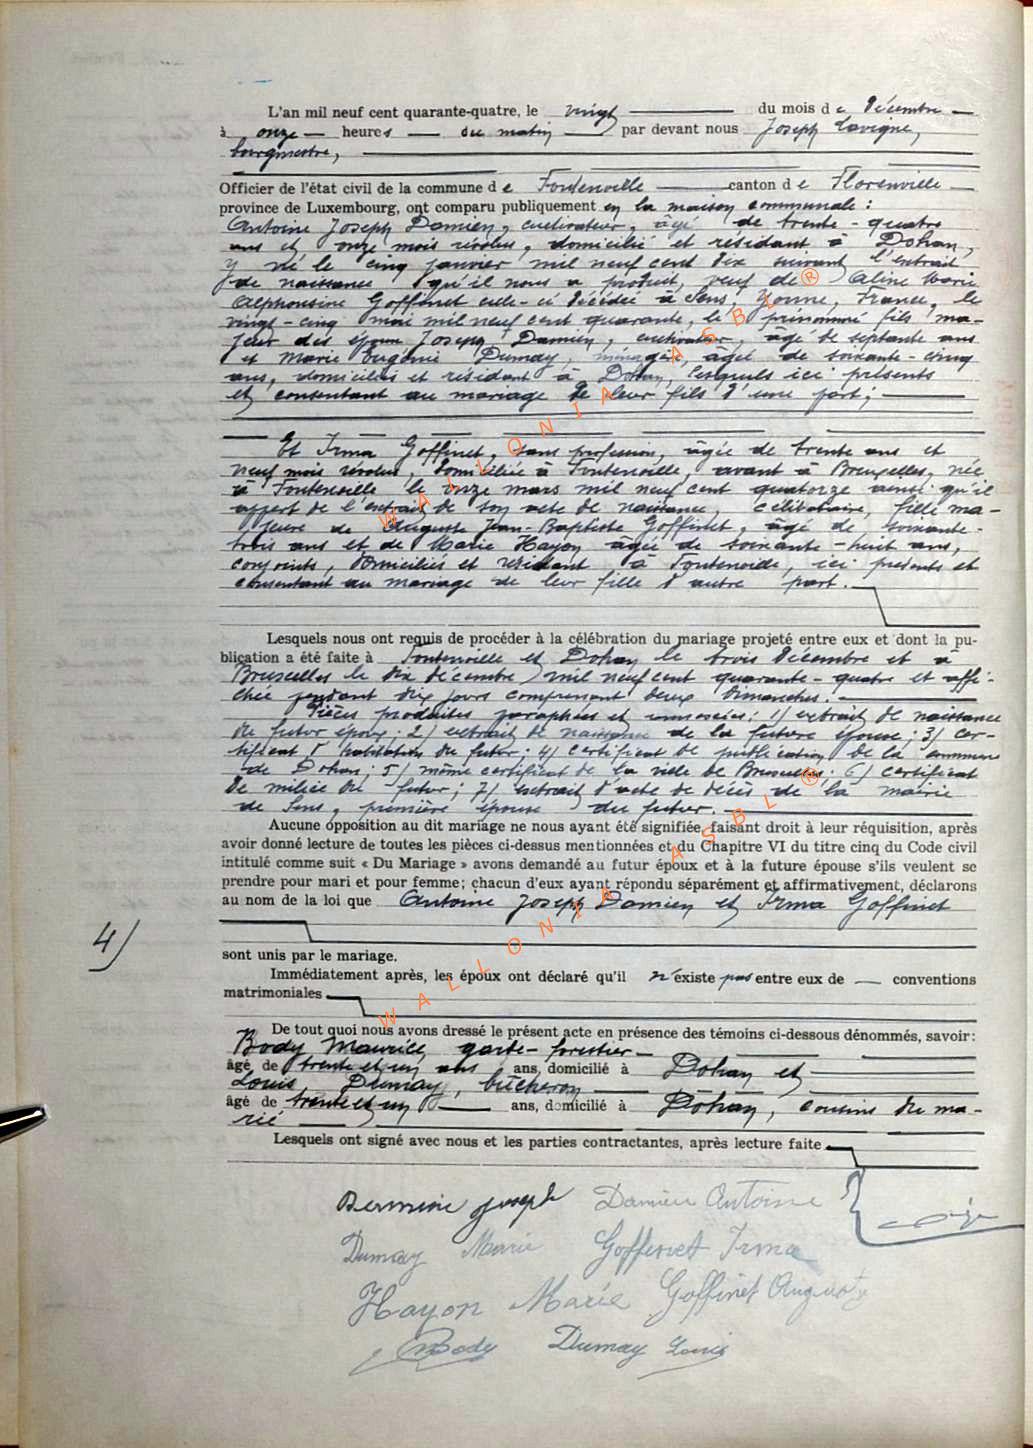 L'an mil neuf cent quarante-quatre, le vingt du mois de Décembre
à onze heures du matin par devant nous Joseph Lavigne,
bourgmestre,
Officier de l'état civil de la commune de Fontenoille canton de Florenville
province de Luxembourg, ont comparu publiquement en la maison communale :
Antoine Joseph Damien, cultivateur, âgé de trente-quatre
ans et onze mois révolus, domicilié et résidant à Dohan,
y né le cinq janvier mil neuf cent dix suivant l'extrait
de naissance qu'il nous a produit, veuf de Aline Marie
Alphonsine Goffinet celle-ci décédée à Sens, Yonne, France, le
vingt-cinq mai mil neuf cent quarante, le prénommé fils ma-
jeur des époux Joseph Damien, cultivateur, âgé de septante ans
et Marie Eugénie Dumay, ménagère, âgée de soixante-cinq
ans, domiciliés et résidant à Dohan, lesquels ici présents
et consentant au mariage de leur fils d'une part ;
Et Irma Goffinet, sans profession, âgée de trente ans et
neuf mois révolus, domiciliée à Fontenoille, avant à Bruxelles, née
à Fontenoille le onze mars mil neuf cent quatorze ainsi qu'il
appert de l'extrait de son acte de naissance, célibataire, fille ma-
jeure de Auguste Jean-Baptiste Goffinet, âgé de soixante
trois ans et de Marie Hayon âgée de soixante-huit ans,
conjoints, domiciliés et résidant à Fontenoille, ici présents et
consentant au mariage de leur fille d'autre part.
Lesquels nous ont requis de procéder à la célébration du mariage projeté entre eux et dont la pu-
blication a été faite à Fontenoille et Dohan le trois décembre et à
Bruxelles le dix décembre mil neuf cent quarante-quatre et affi-
chée pendant dix jours comprenant deux dimanches.
Pièces produites paraphées et annexées : 1) extrait de naissance
du futur époux ; 2) extrait de naissance de la future épouse ; 3) cer-
tificat d'habitation du futur ; 4) certificat de publication de la commune
de Dohan ; 5) même certificat de la ville de Bruxelles ; 6) certificat
de milice du futur ; 7) extrait d'acte de décès de la mairie
de Sens, première épouse du futur.
Aucune opposition au dit mariage ne nous ayant été signifiée, faisant droit à leur réquisition, après
avoir donné lecture de toutes les pièces ci-dessus mentionnées et du Chapitre VI du titre cinq du Code civil
intitulé comme suit « Du Mariage » avons demandé au futur époux et à la future épouse s'ils veulent se
prendre pour mari et pour femme ; chacun d'eux ayant répondu séparément et affirmativement, déclarons
au nom de la loi que Antoine Joseph Damien et Irma Goffinet
4)
sont unis par le mariage.
Immédiatement après, les époux ont déclaré qu'il n'existe pas entre eux de conventions
matrimoniales
De tout quoi nous avons dressé le présent acte en présence des témoins ci-dessous dénommés, savoir :
Body Maurice, garde-forestier
âgé de trente et un ans ans, domicilié à Dohan et
Louis Dumay, bûcheron
âgé de trente et un ans, domicilié à Dohan, cousins du ma-
rié
Lesquels ont signé avec nous et les parties contractantes, après lecture faite
Joseph Damien Antoine
Dumay Marie Goffinet Irma
Hayon Marie Goffinet Auguste
Body Dumay Louis
WALLONIA ASBL ®
WALLONIA ASBL ®